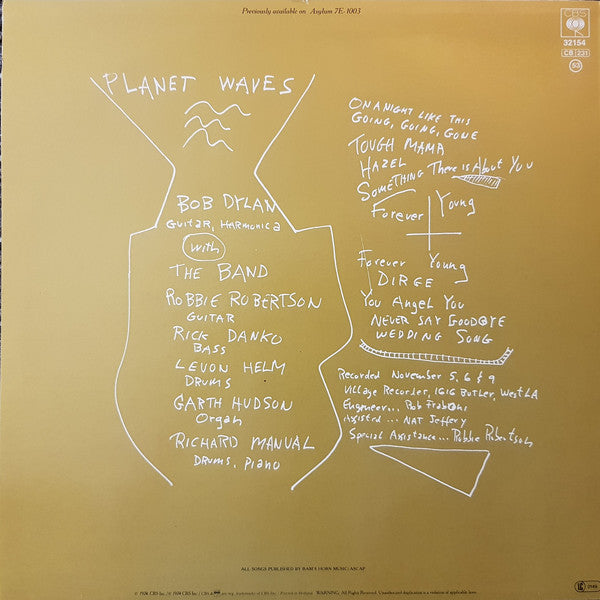 Previously available on Asylum 7E-1003
CBS
32154
CB 231
PLANET WAVES
BOB DYLAN
GUITAR, HARMONICA
with
THE BAND
ROBBIE ROBERTSON
GUITAR
RICK DANKO
BASS
LEVON HELM
DRUMS
GARTH HUDSON
Organ
RICHARD MANUAL
DRUMS, PIANO
ON A NIGHT LIKE THIS
GOING, GOING, GONE
TOUGH MAMA
HAZEL
SOMETHING There is About You
Forever Young
Forever Young
DIRGE
You Angel You
NEVER SAY GOODBYE
WEDDING SONG
Recorded November 5, 6 & 9
Village Recorder, 1616 Butler, West LA
Engeneer... Rob Fraboni
Assistd... NAT Jeffery
Special Assistance... Robbie Robertson
ALL SONGS PUBLISHED BY RAM'S HORN MUSIC/ASCAP
WARNING: All Rights Reserved. Unauthorized duplication is a violation of applicable laws.